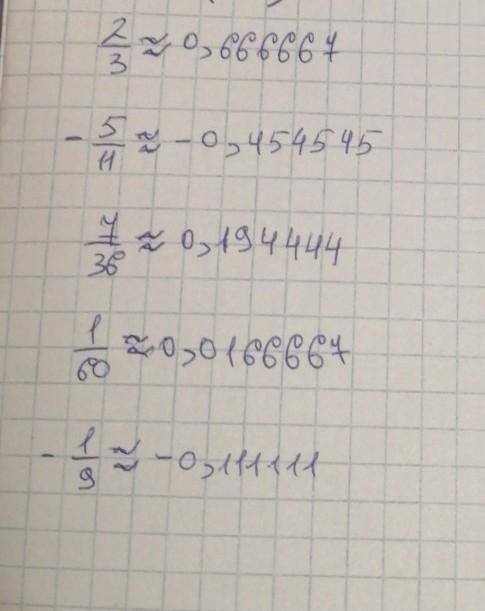 2/3 ≈ 0,666667
- 5/11 ≈ - 0,454545
7/36 ≈ 0,194444
1/60 ≈ 0,0166667
- 1/9 ≈ - 0,111111